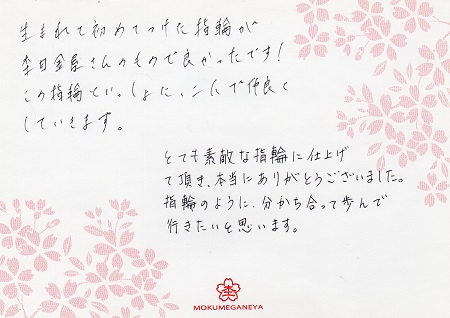 生まれて初めてつけた指輪が
杢目金屋さんのもので良かったです!
この指輪といっしょに、二人で仲良く
していきます。
とても素敵な指輪に仕上げ
て頂き、本当にありがとうございました。
指輪のように、分かち合って歩んで
行きたいと思います。
杢
MOKUMEGANEYA